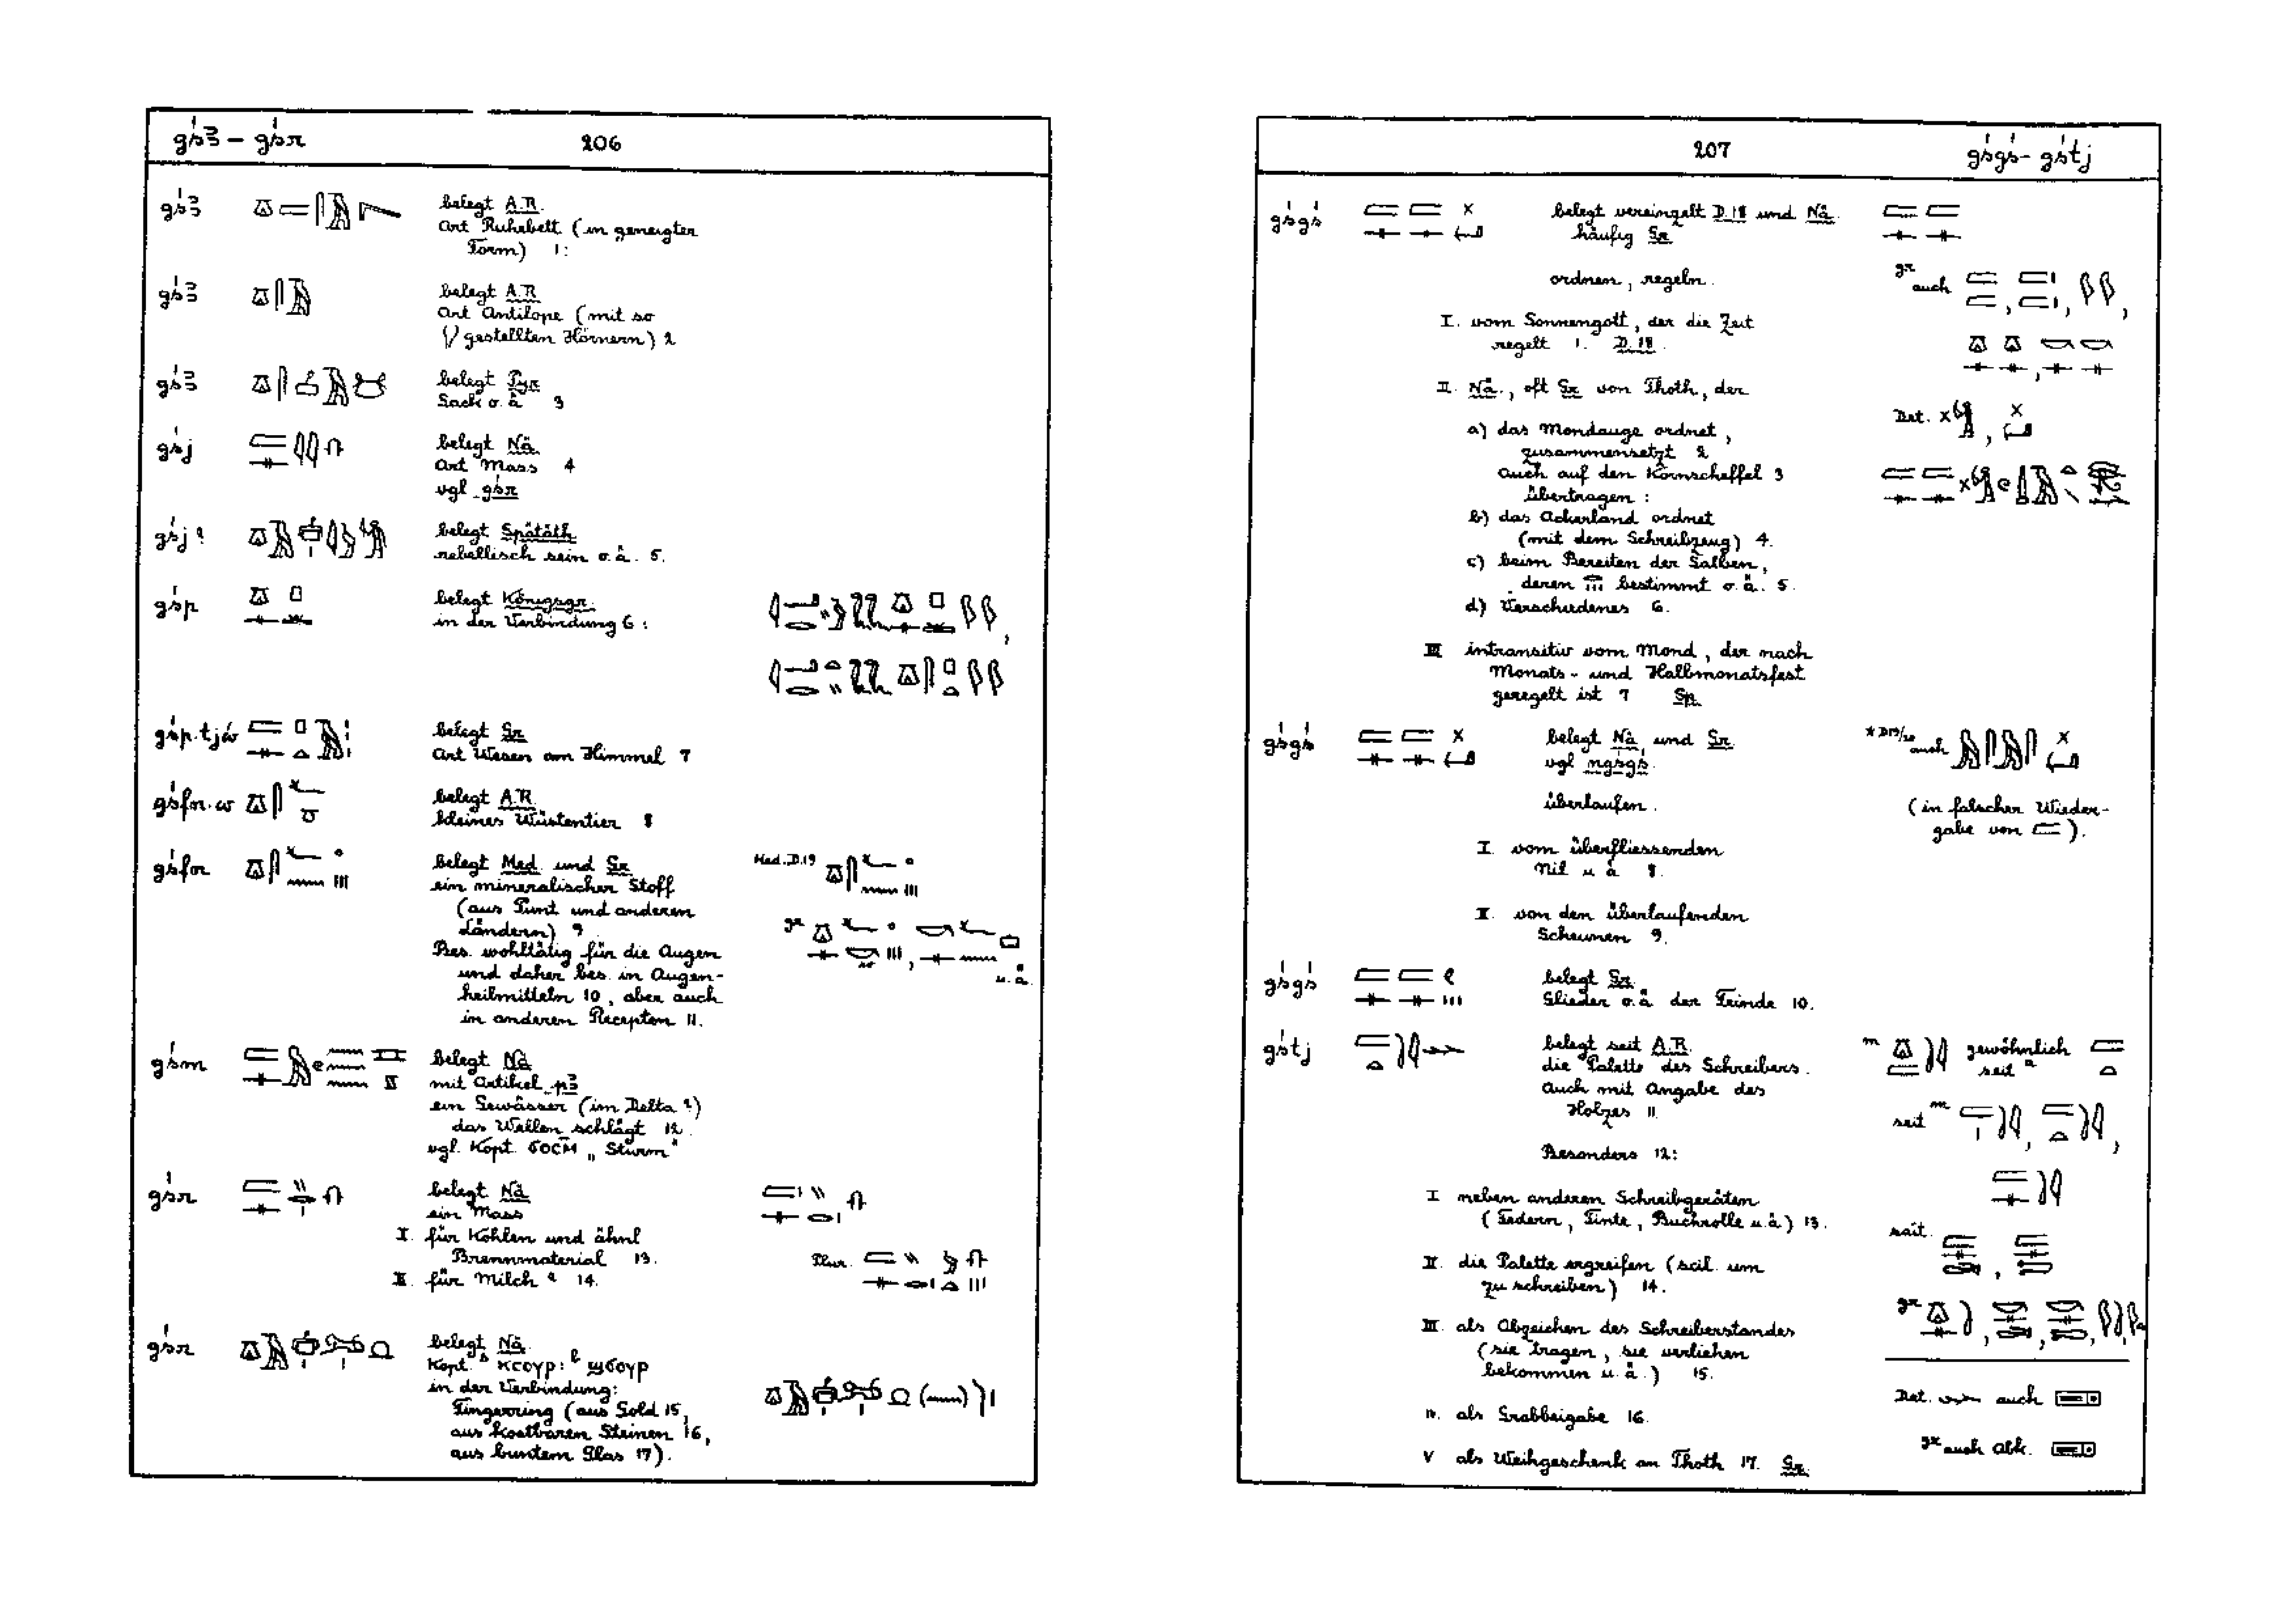 gś3 – gśr 206
gś3 belegt A.R.
Art Ruhebett (in geneigter
Form) 1:
gś3 belegt A.R.
Art Antilope (mit so
gestellten Hörnern) 2
gś3 belegt Pyr.
Sack o. ä 3
gśj belegt Nä.
Art Mass 4
vgl gśr
gśj ? belegt Spätäth
rebellisch sein o. ä. 5.
gśp belegt Königsgr.
in der Verbindung 6:
gśp.tjw belegt Gr.
Art Wesen am Himmel 7
gśfn.w belegt A.R.
kleines Wüstentier 8
gśfn belegt Med. und Gr. Med. D.19
ein mineralischer Stoff
(aus Punt und anderen
Ländern) 9 gr
Bes. wohltätig für die Augen
und daher bes. in Augen- u. ä.
heilmitteln 10, aber auch
in anderen Recepten 11.
gśm belegt Nä
mit Artikel p3
ein Gewässer (im Delta ?)
das Wellen schlägt 12.
vgl. Kopt. ϭⲟⲥⲙ̄ „Sturm"
gśr belegt Nä
ein Mass
I. für Kohlen und ähnl
Brennmaterial 13. Plur.
II. für Milch ? 14.
gśr belegt Nä.
Kopt. ᔆ ⲕⲥⲟⲩⲣ: ᵇ ϣϭⲟⲩⲣ
in der Verbindung:
Fingerring (aus Gold 15,
aus kostbaren Steinen 16,
aus buntem Glas 17).
207 gśgś – gśtj
gśgś belegt vereinzelt D.18 und Nä.
häufig Gr.
ordnen, regeln. gr auch
I. vom Sonnengott, der die Zeit
regelt 1. D.18.
II. Nä., oft Gr. von Thoth, der
Det.
a) das Mondauge ordnet,
zusammensetzt 2
auch auf den Kornscheffel 3
übertragen:
b) das Ackerland ordnet
(mit dem Schreibzeug) 4.
c) beim Bereiten der Salben,
deren bestimmt o. ä. 5.
d) Verschiedenes 6.
III intransitiv vom Mond, der nach
Monats- und Halbmonatsfest
geregelt ist 7 Sp.
gśgś belegt Nä. und Gr. * D19/20 auch
vgl ngśgś.
überlaufen. (in falscher Wieder-
gabe von ).
I. vom überfliessenden
Nil u ä 8.
II. von den überlaufenden
Scheunen 9.
gśgś belegt Gr.
Glieder o. ä der Feinde 10.
gśtj belegt seit A.R. m gewöhnlich
die Palette des Schreibers. seit a
Auch mit Angabe des
Holzes 11. seit m
Besonders 12:
I neben anderen Schreibgeräten
(Federn, Tinte, Buchrolle u. ä) 13.
sait.
II. die Palette ergreifen (scil. um
zu schreiben) 14.
gr
III. als Abzeichen des Schreiberstandes
(sie tragen, sie verliehen
bekommen u. ä.) 15.
Det. auch
IV. als Grabbeigabe 16.
gr auch Abk.
V als Weihgeschenk an Thoth 17. Gr.